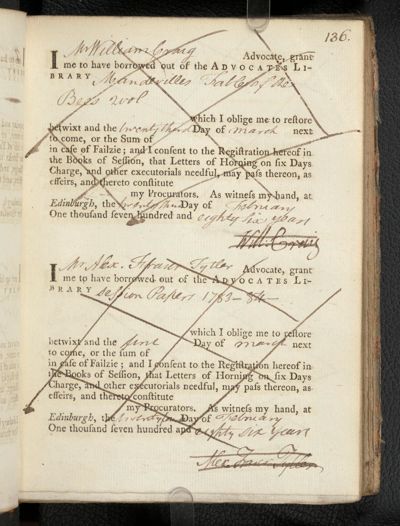 136.
I Mr William Craig Advocate, grant
me to have borrowed out of the ADVOCATES LI-
BRARY Mandevilles Fable of the
Bees 2 vol
which I oblige me to reſtore
betwixt and the twenty third Day of march next
to come, or the Sum of
in caſe of Failzie; and I conſent to the Regiſtration hereof in
the Books of Seſſion, that Letters of Horning on ſix Days
Charge, and other executorials needful, may paſs thereon, as
effeirs, and thereto conſtitute
my Procurators. As witneſs my hand, at
Edinburgh, the Day of February
One thouſand ſeven hundred and eighty six years
Will. Craig
I Mr Alex. Fraser Tytler Advocate, grant
me to have borrowed out of the ADVOCATES LI-
BRARY Session Papers 1783-84
which I oblige me to reſtore
betwixt and the Day of march next
to come, or the ſum of
in caſe of Failzie; and I conſent to the Regiſtration hereof in
the Books of Seſſion, that Letters of Horning on ſix Days
Charge, and other executorials needful, may paſs thereon, as
effeirs, and thereto conſtitute
my Procurators. As witneſs my hand, at
Edinburgh, the Day of February
One thouſand ſeven hundred and eighty six years
Alex. Fraser Tytler